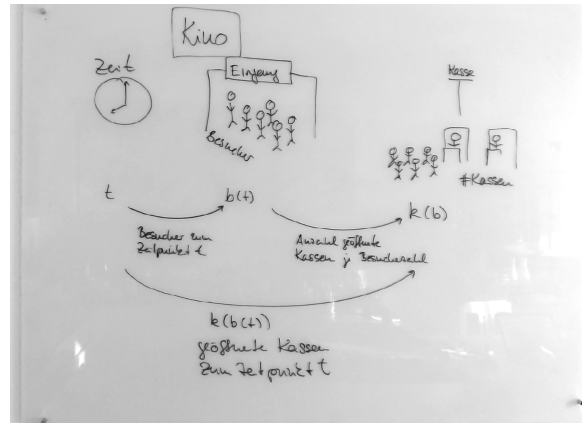 Kino
Zeit
Eingang
Kasse
Besucher
#Kassen
t
b(t)
k(b)
Besucher zum
Zeitpunkt t
Anzahl geöffnete
Kassen je Besucherzahl
k(b(t))
geöffnete Kassen
zum Zeitpunkt t